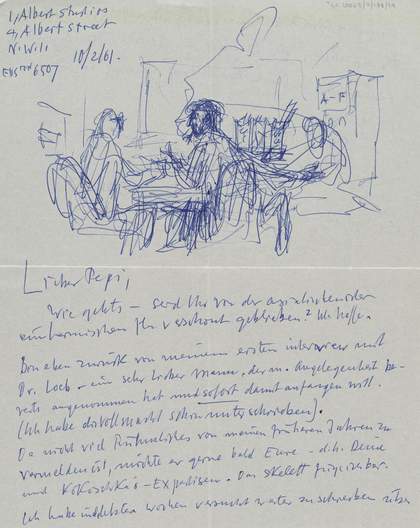 1, Albert Studios
Albert Street
N.W.11
EUSTON 6507
10/2/61.
A-F
Lieber Pepi,
Wie gehts – seid Ihr von der asiatischen oder
einheimischen Flu verschont geblieben? Ich hoffe.
Bin eben zurück von meinem ersten interview mit
Dr. Loeb – ein sehr lieber Mann, der m. Angelegenheit be-
reits angenommen hat und sofort damit anfangen will.
(Ich habe die Vollmacht schon unterschrieben).
Da nicht viel Rühmliches von meinen früheren Jahren zu
vermelden ist, möchte er gerne bald Eure – d.h. Deine
und Kokoschka's – Expertisen. Das Skelett
Ich habe wochen versucht weiter zu schreiben